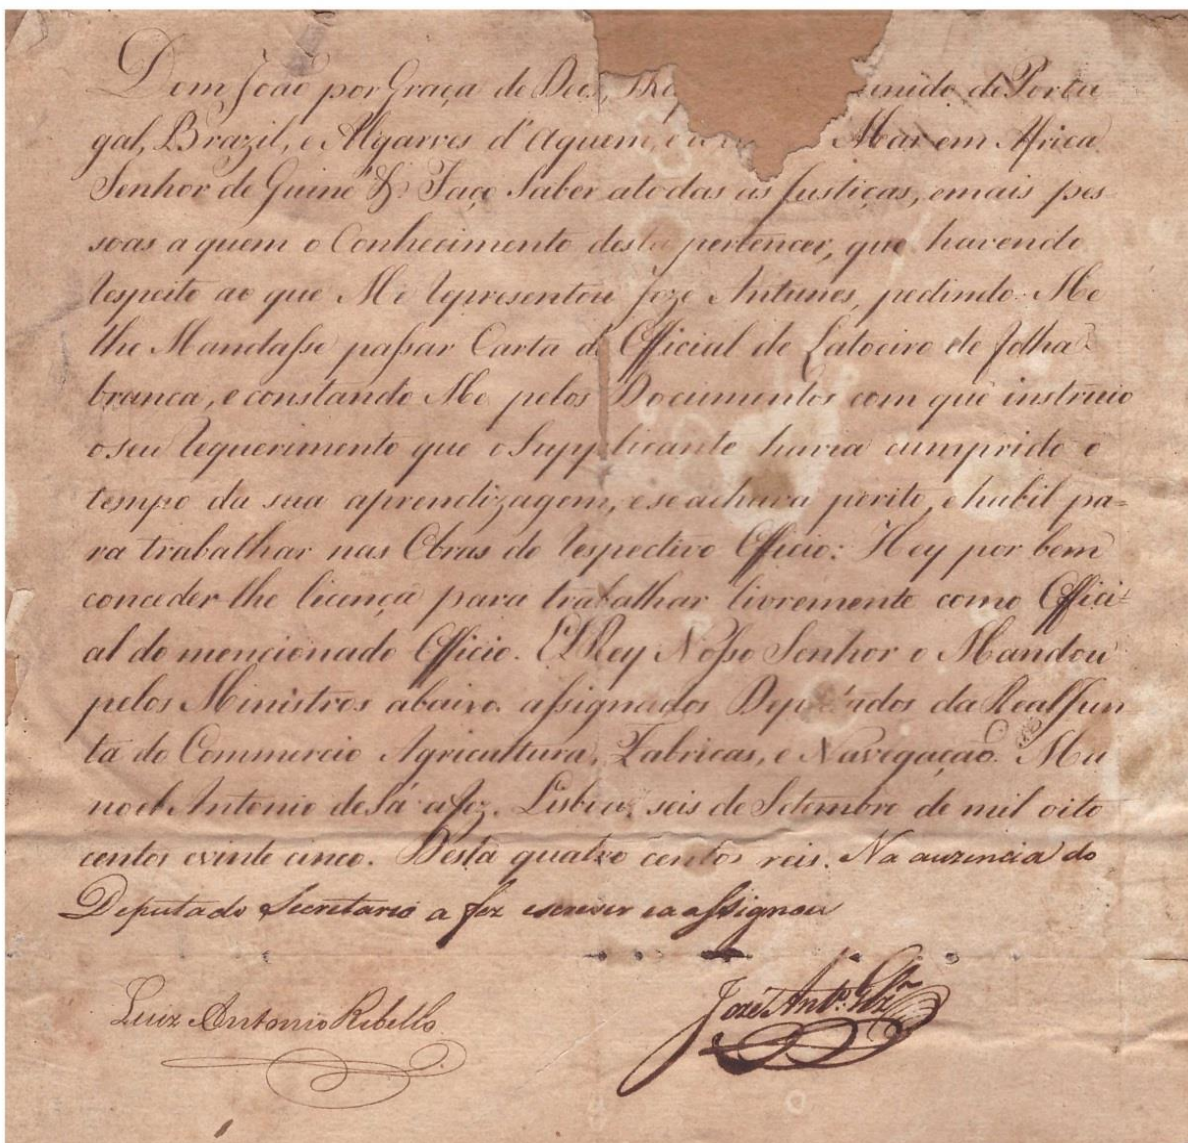 Dom João por Graça de Deos, Re unido de Portu
gal, Brazil, e Algarves d'aquem, e Mar em Africa
Senhor de Guiné &. Faço Saber atodas as Justiças, emais pes
soas a quem o Conhecimento desta pertencer, que havendo
respeito ao que Me representou Joze Antunes, pedindo-Me
lhe Mandasse passar Carta de Official de Latoeiro de folha
branca, e constando Me pelos Documentos com que instruio
o seu requerimento que o Supplicante havia cumprido o
tempo da sua aprendizagem, e se achava perito, e habil pa=
ra trabalhar nas Obras do respectivo Officio: Hey por bem
conceder lhe licença para trabalhar livremente como Offici=
al do mencionado Officio. El Rey Nosso Senhor o Mandou
pelos Ministros abaixo assignados Deputados da Real Jun
ta do Commercio Agricultura, Fabricas, e Navegação. Ma
noel Antonio de Sá a fez. Lisboa, seis de Setembro de mil oito
centos evinte cinco. Desta quatro centos reis. Na auzencia do
Deputado Secretario a fez escrever ea assignou
Luiz Antonio Rebello
Jozé Ant.º